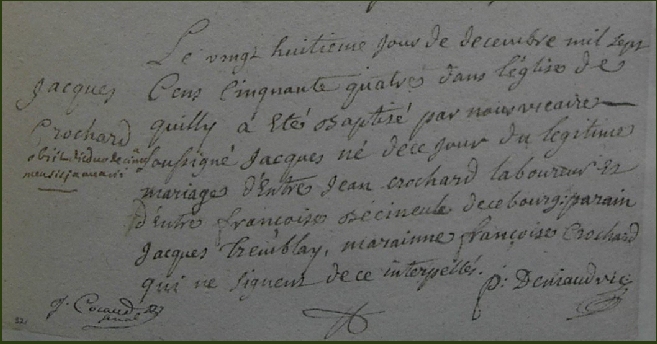 Le vingt huitieme jour de decembre mil sept
Cens Cinquante quatre dans l'église de
quilly a été Baptisé par nous vicaire
soussigné Jacques né de ce jour du legitime
mariage d'Entre Jean crochard laboureur Et
d'Entre françoise de ce bourg: parain
Jacques Tremblay, marainne françoise Crochard
qui ne signent de ce interpellés.
Jacques
Crochard
obiit
p: Deniaud vic